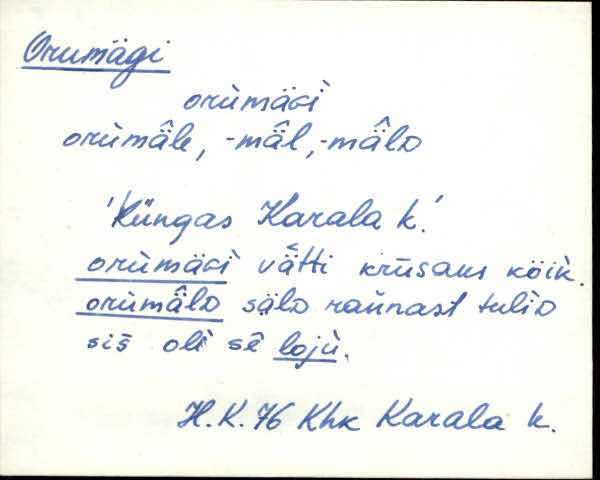 Orumägi
orùmäɢì
orùmä̂le, -mä̂l, -mä̂lᴅ
'Küngas Karala k.'
orùmäɢì vät́ti krūsaus köik.
orùmä̂lᴅ sälᴅ raǹnast tuliᴅ
siš olì sê lojù.
H.K. 76 Khk Karala k.